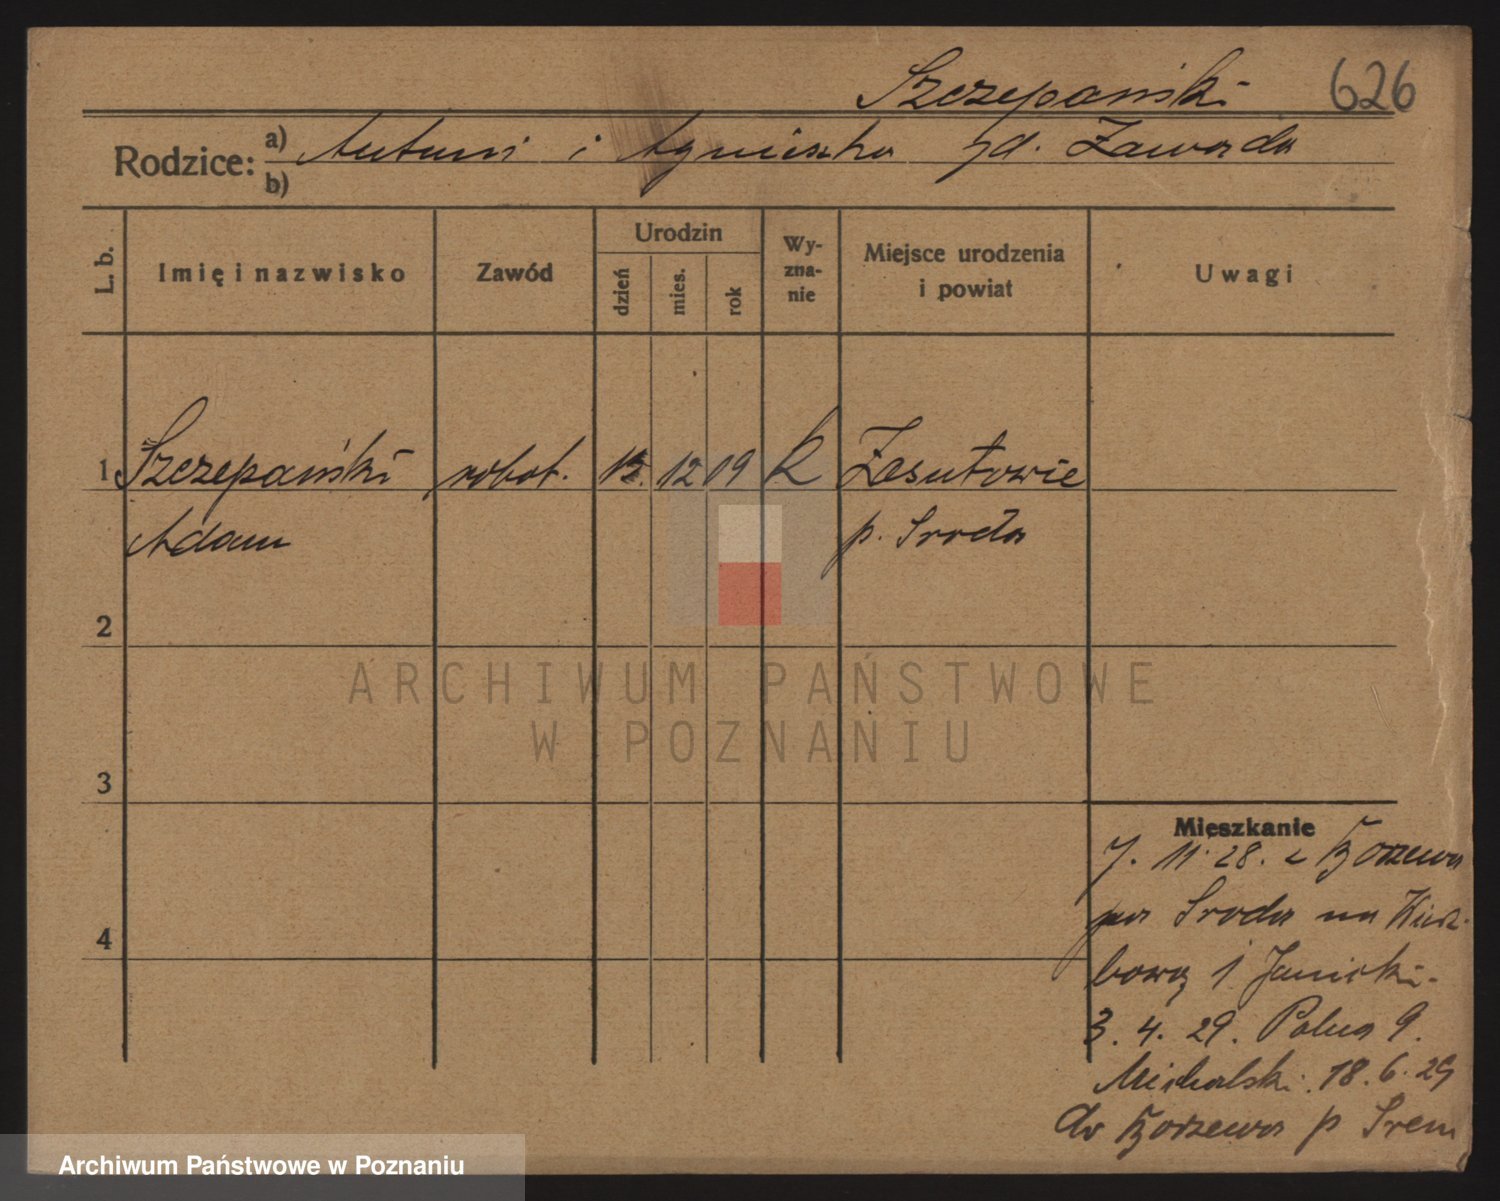 Szczepański 626
Rodzice: a) Antoni i Agnieszka zd. Zawada
b)
L. b. Imię i nazwisko Zawód Urodzin dzień mies. rok Wyznanie Miejsce urodzenia i powiat Uwagi
1 Szczepański robot. 12 09 k Zasutowie
Adam p. Środa
2
ARCHIWUM PAŃSTWOWE
W POZNANIU
3
Mieszkanie
7. 11. 28. z
Środa na
4
bową 1 Janicki.
3. 4. 29. Polna 9.
Michalski. 18. 6. 29
do p Śrem
Archiwum Państwowe w Poznaniu